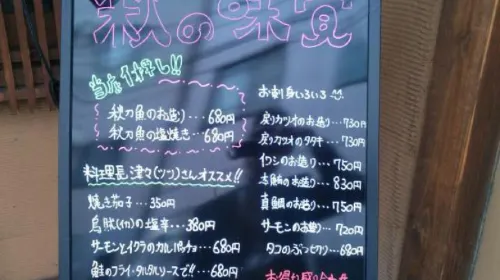 秋の味覚
当店イチ押し!!
秋刀魚のお造り・・・680円
秋刀魚の塩焼き・・680円
料理長 津々(ツツ)さんオススメ!!
焼き茄子・・・350円
烏賊(イカ)の塩辛・・・380円
サーモンとイクラのカルパッチョ・・・680円
鮭のフライ・タルタルソースで!!・・680円
お刺身いろいろ
戻りカツオのお造り・・・730円
戻りカツオのタタキ・・・730円
イワシのお造り・・・750円
本鮪のお造り・・・830円
真鯛のお造り・・・750円
サーモンのお造り・・・720円
タコのぶつ切り・・・680円